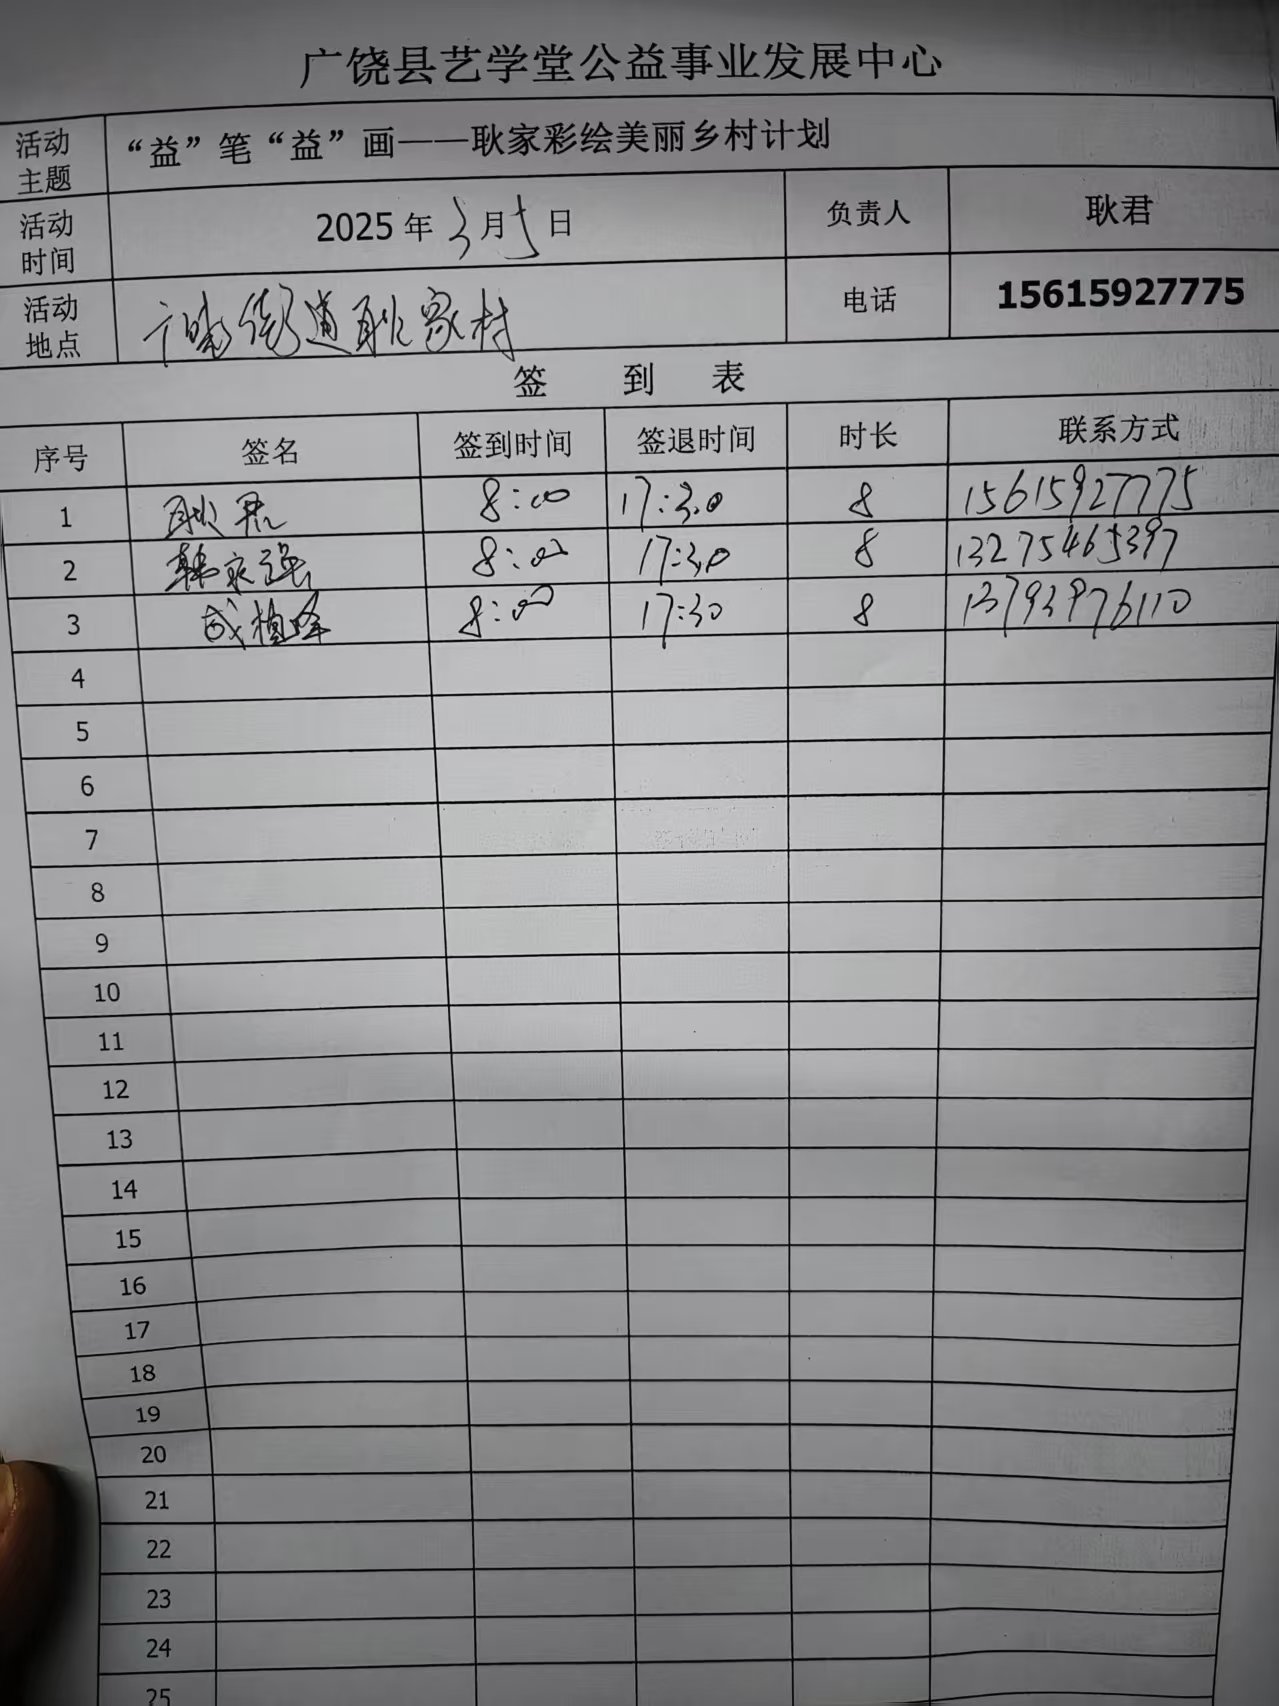 广饶县艺学堂公益事业发展中心
活动主题 “益”笔“益”画——耿家彩绘美丽乡村计划
活动时间 2025年3月5日 负责人 耿君
活动地点 广饶街道耿家村 电话 15615927775
签 到 表
序号 签名 签到时间 签退时间 时长 联系方式
1 耿君 8:00 17:30 8 15615927775
2 韩永强 8:00 17:30 8 13275465397
3 成植峰 8:00 17:30 8 13793976110
4
5
6
7
8
9
10
11
12
13
14
15
16
17
18
19
20
21
22
23
24
25